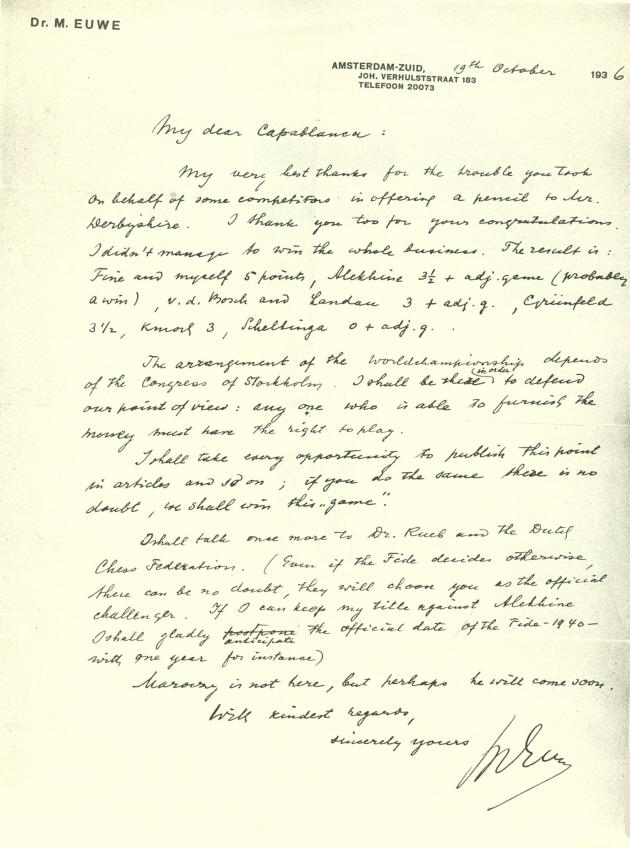 Dr. M. EUWE
AMSTERDAM-ZUID, 19th October 1936
JOH. VERHULSTSTRAAT 183
TELEFOON 20073
My dear Capablanca :
My very best thanks for the trouble you took
on behalf of some competitors in offering a pencil to Mr.
Derbyshire. I thank you too for your congratulations.
I didn't manage to win the whole business. The result is :
Fine and myself 5 points, Alekhine 3½ + adj. game (probably
a win), v. d. Bosch and Landau 3 + adj. g. , Grünfeld
3½, Kmoch 3, Scheltinga 0 + adj. g. .
The arrangement of the worldchampionship depends
of the Congress of Stockholm. I shall be there (in order) to defend
our point of view : any one who is able to furnish the
money must have the right to play.
I shall take every opportunity to publish this point
in articles and so on ; if you do the same there is no
doubt, we shall win this „game".
I shall talk once more to Dr. Rueb and the Dutch
Chess Federation. (Even if the Fide decides otherwise,
there can be no doubt, they will choose you as the official
challenger. If I can keep my title against Alekhine
I shall gladly postpone anticipate the official date of the Fide - 1940 -
with one year for instance)
Maroczy is not here, but perhaps he will come soon.
With kindest regards,
sincerely yours
M Euwe